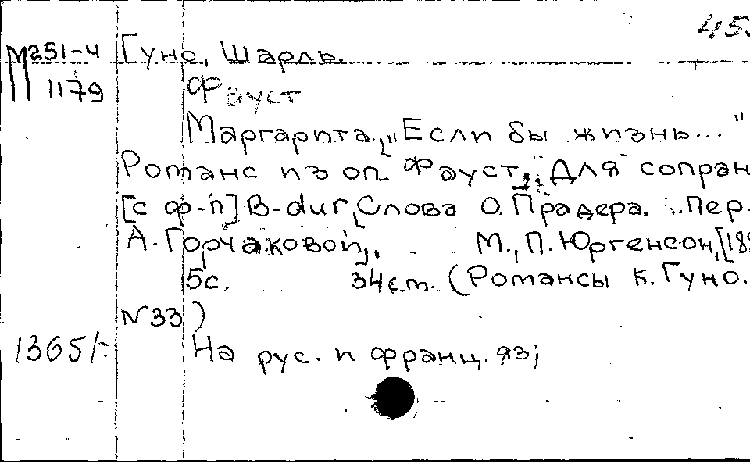 453
М251-4 Гуно, Шарль.
П 1179 Фауст
Маргарита. "Если бы жизнь..."
Романс из оп. "Фауст". Для сопран
[с ф-п] B-dur, Слова О. Прадера. Пер.
А. Горчаковой. М., П. Юргенсон, [18
5с. 34см. (Романсы К. Гуно.
N 33)
13651- На рус. и франц. яз;